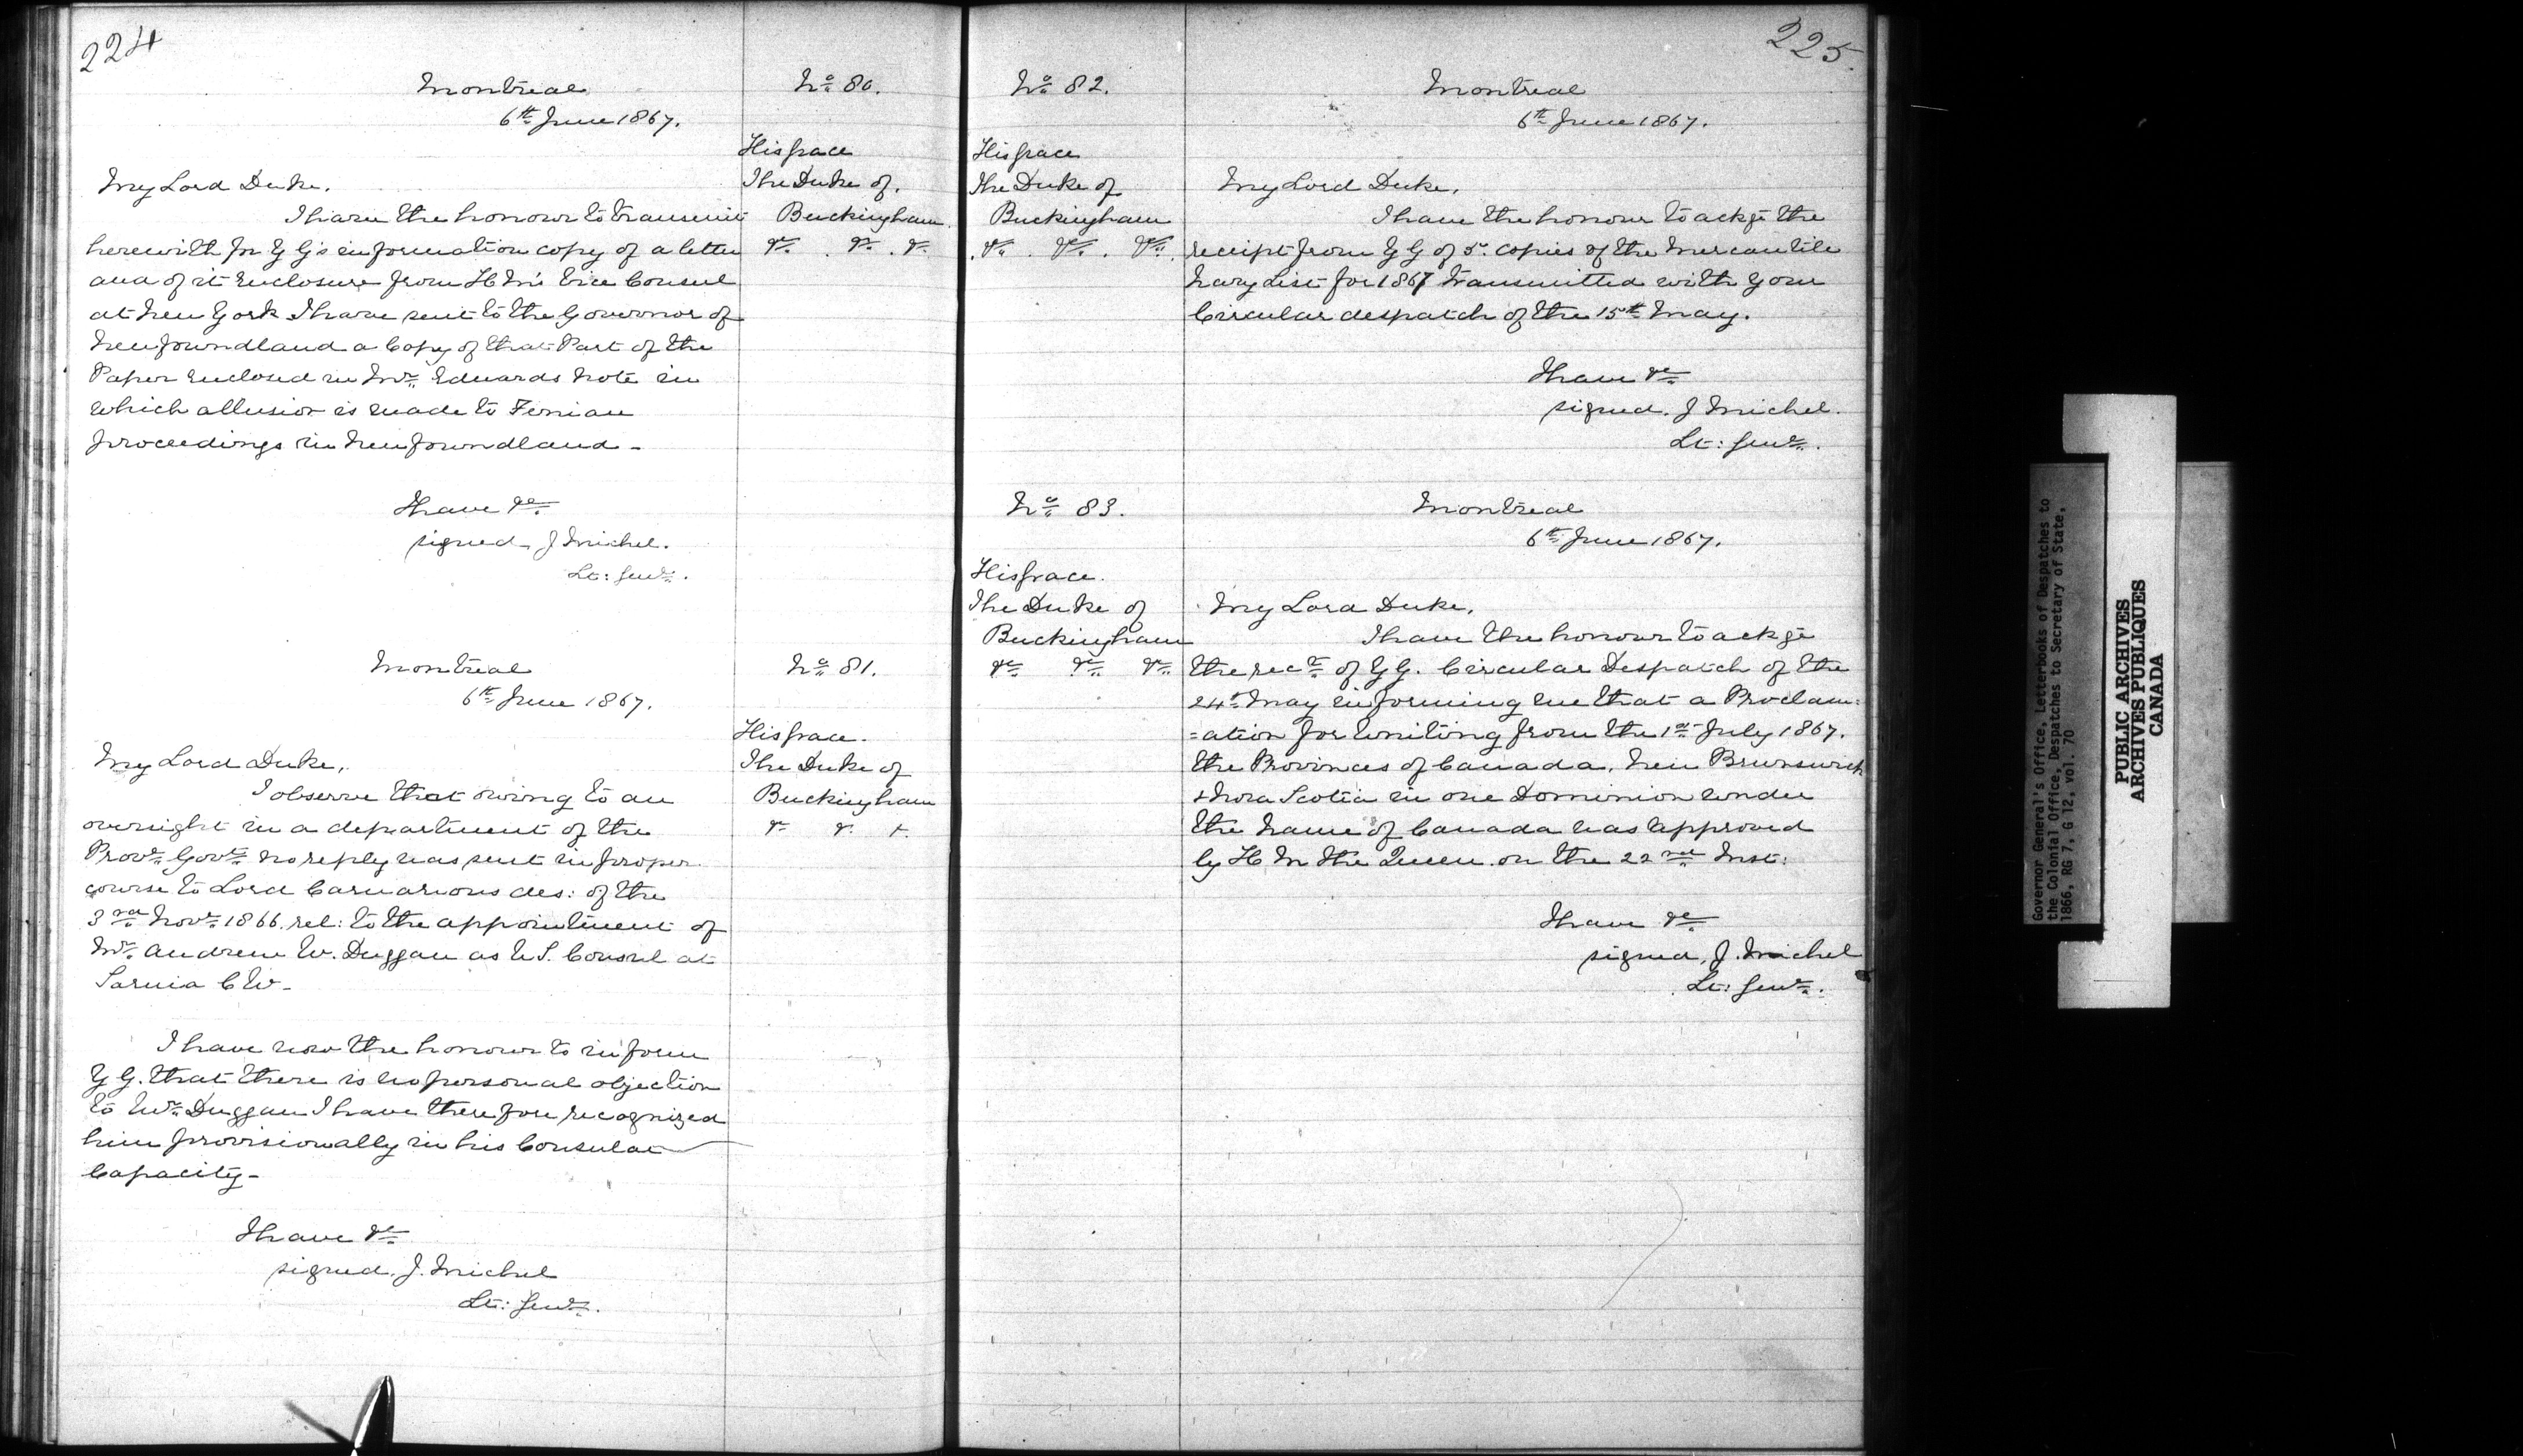 224
Montreal
6th June 1867.
No 80.
His Grace
The Duke of
Buckingham
&c. &c. &c.
My Lord Duke,
I have the honour to transmit
herewith for Y G's information copy of a letter
and of it enclosure from H M's Vice Consul
at New York I have sent to the Governor of
Newfoundland a Copy of that Part of the
Paper enclosed in Mr. Edwards note in
which allusion is made to Fenian
proceedings in Newfoundland -
I have &c
signed J Michel.
Lt: Genl.
Montreal
6th June 1867.
No 81.
His Grace.
The Duke of
Buckingham
& & &.
My Lord Duke,
I observe that owing to an
oversight in a department of the
Provl. Govt. no reply was sent in proper
course to Lord Carnarvons des: of the
3rd Novr. 1866. rel: to the appointment of
Mr. Andrew W. Duggan as U.S. Consul at
Sarnia C W -
I have now the honour to inform
Y G. that there is no personal objection
to Mr. Duggan I have therefore recognized
him provisionally in his Consular
Capacity -
I have &c
signed. J. Michel
Lt: Genl.
225.
No 82.
Montreal
6th June 1867.
His Grace
The Duke of
Buckingham
&c. &c. &c.
My Lord Duke,
I have the honour to ackge the
receipt from Y G of 5. copies of the Mercantile
Navy List for 1867 transmitted with your
Circular despatch of the 15th May.
I have &c
signed. J Michel.
Lt: Genl.
No 83.
Montreal
6th June 1867.
His Grace.
The Duke of
Buckingham
&c &c &c
My Lord Duke,
I have the honour to ackge
the rect of Y G. Circular Despatch of the
24th May informing me that a Proclam:
=ation for Uniting from the 1st July 1867.
the Provinces of Canada, New Brunswick
& Nova Scotia in one Dominion under
the Name of Canada was approved
by H M the Queen on the 22nd Inst:
I have &c
signed, J. Michel
Lt: Genl.
Governor General's Office, Letterbooks of Despatches to
the Colonial Office, Despatches to Secretary of State,
1866, RG 7, G 12, vol. 70
PUBLIC ARCHIVES
ARCHIVES PUBLIQUES
CANADA